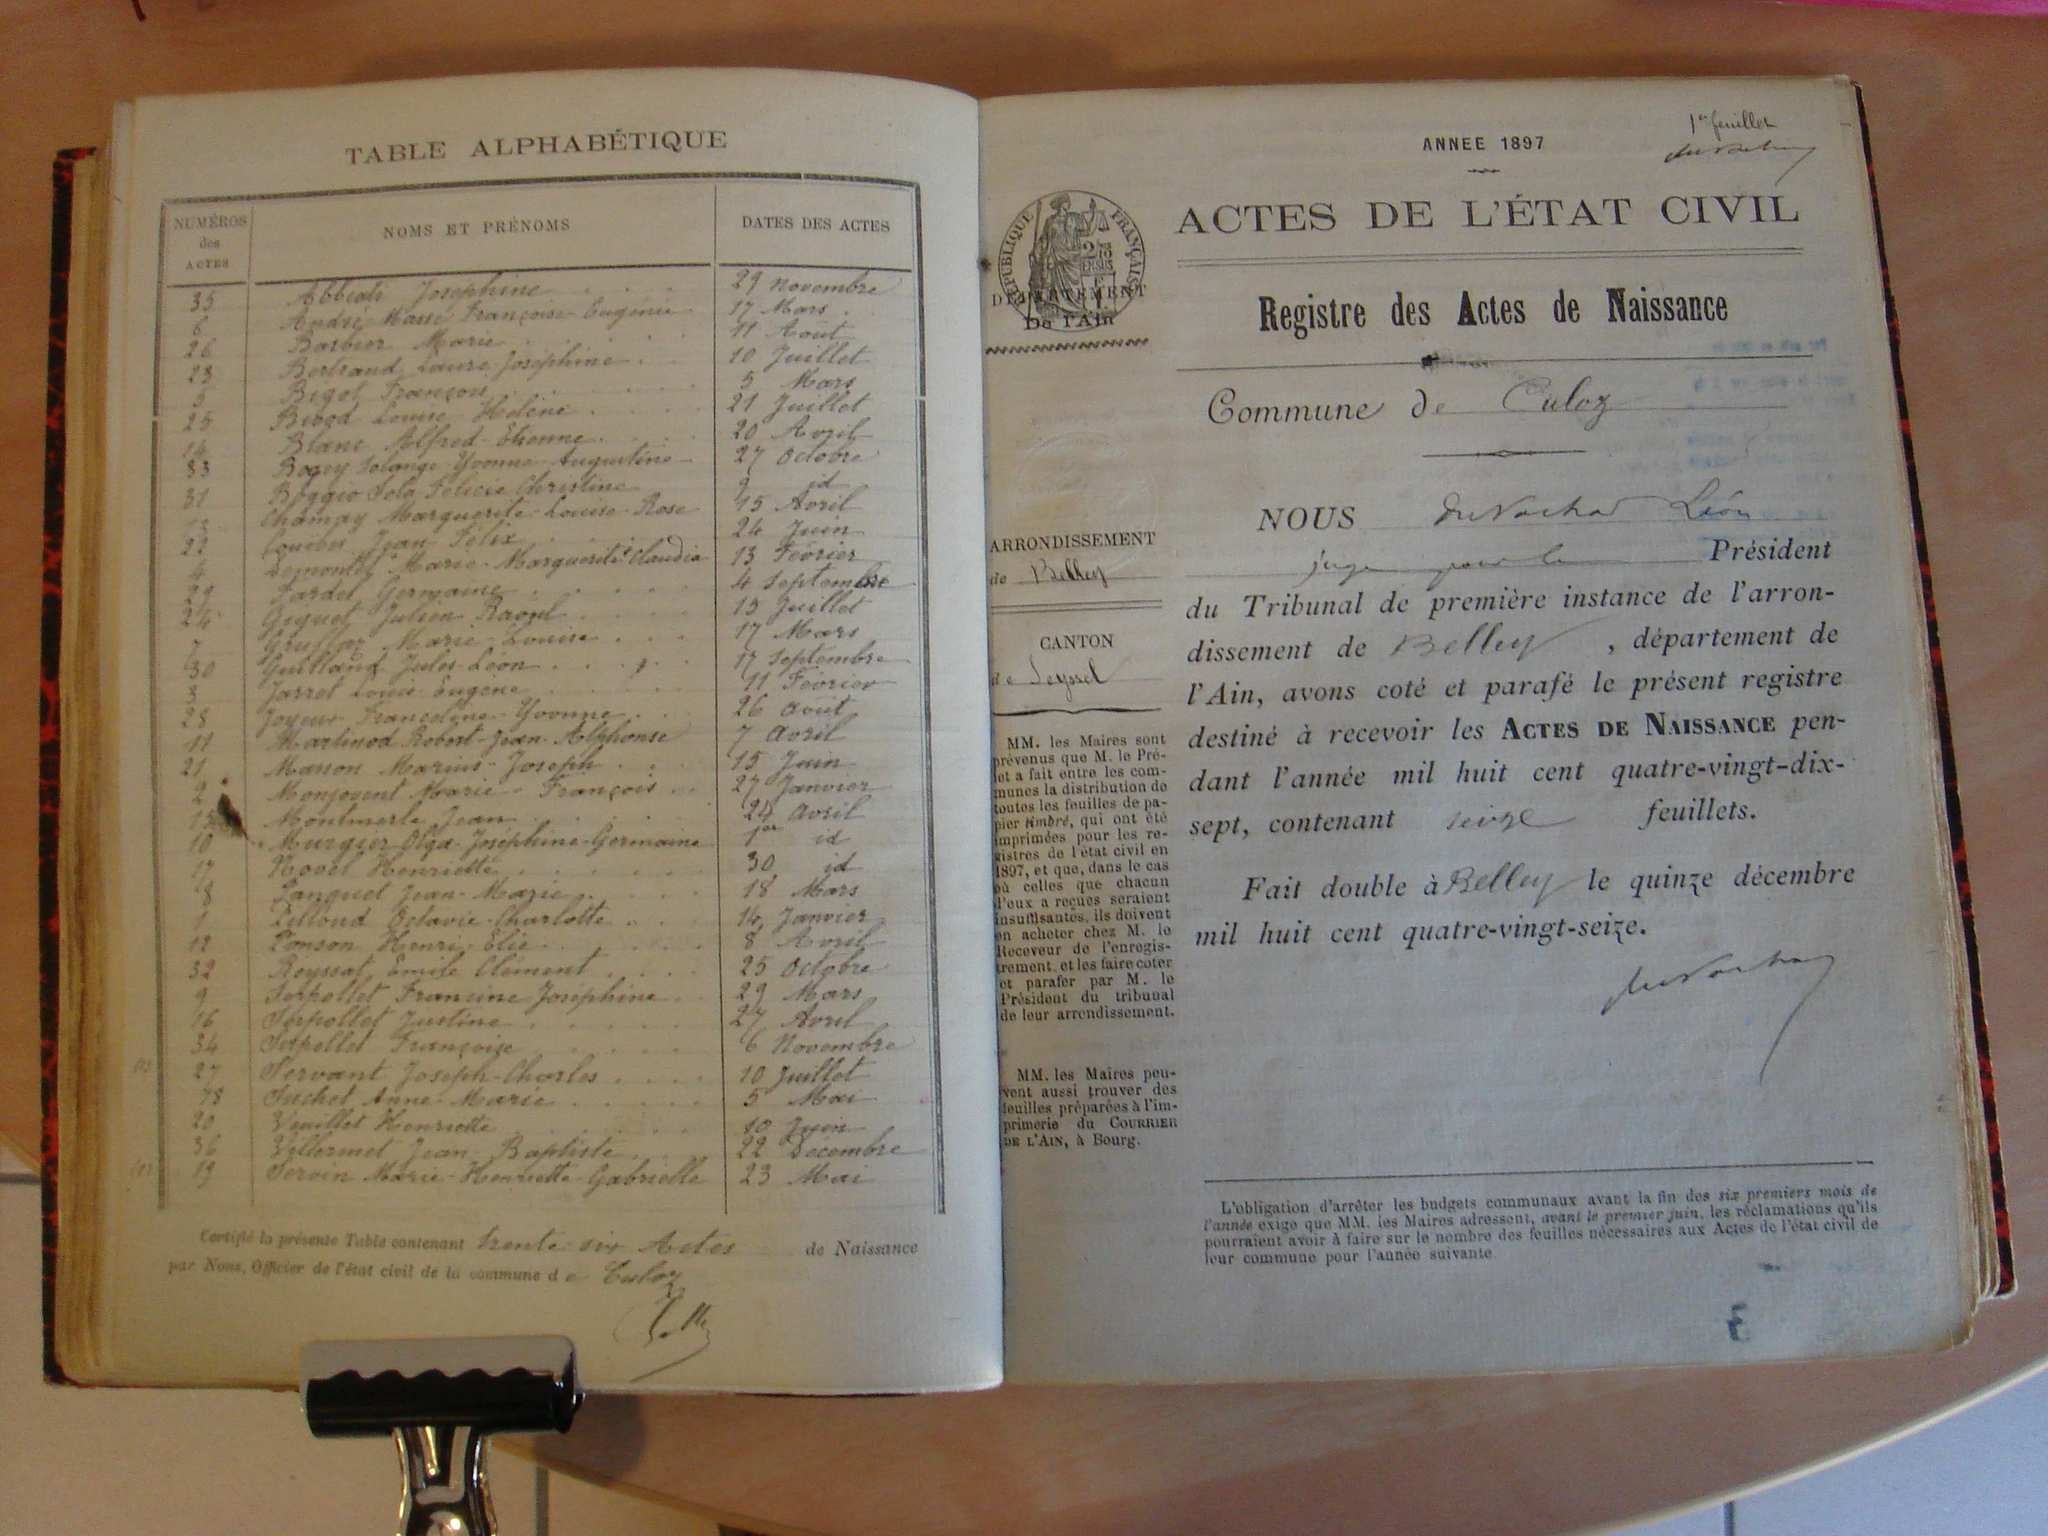 TABLE ALPHABÉTIQUE
NUMÉROS des ACTES
NOMS ET PRÉNOMS
DATES DES ACTES
35 Abbiati Josephine 29 Novembre
6 André Masse Françoise Eugénie 17 Mars
26 Barbier Marie 11 Août
23 Bertrand Laure Joséphine 10 Juillet
5 Bigot François 5 Mars
25 Louise Hélène 21 Juillet
14 Blanc Alfred-Etienne 20 Avril
33 Bogey Solange Yvonne Augustine 27 Octobre
31 Boggio Sola Félicie Christine 9 id
Chamay Marguerite-Louise-Rose 15 Avril
22 Jean Félix 24 Juin
4 Marie-Marguerite Claudia 13 Février
29 Fardel Germaine 4 Septembre
24 Giguet Julien Raoul 13 Juillet
7 Marie-Louise 17 Mars
30 Guilland Jules-Léon 17 Septembre
3 Jarret Louis Eugène 11 Février
28 Joyeux Yvonne 26 Août
11 Martinod Robert-Jean-Alphonse 7 Avril
21 Masson Marius-Joseph 15 Juin
2 Monjovent Marie-François 27 Janvier
15 Montmerle Jean 24 Avril
10 Murgier Olga-Joséphine-Germaine 1er id
17 Novel Henriette 30 id
8 Panquet Jean-Marie 18 Mars
1 Octavie-Charlotte 14 Janvier
12 Ponson Henri-Elie 8 Avril
32 Reyssat Emile Clément 25 Octobre
9 Serpollet Francine Joséphine 29 Mars
16 Serpollet Justine 27 Avril
34 Serpollet Françoise 6 Novembre
27 Servant Joseph-Charles 10 Juillet
18 Suchet Anne-Marie 5 Mai
20 Vuillet Henriette 10 Juin
36 Villermet Jean-Baptiste 22 Décembre
19 Servin Marie-Henriette-Gabrielle 23 Mai
Certifié la présente Table contenant trente-six Actes de Naissance
par Nous, Officier de l'état civil de la commune de Culoz
1er feuillet
ANNEE 1897
ACTES DE L'ÉTAT CIVIL
RÉPUBLIQUE FRANÇAISE
DÉPARTEMENT
De l'Ain
Registre des Actes de Naissance
Commune de Culoz
ARRONDISSEMENT
de Belley
CANTON
de Seyssel
MM. les Maires sont
prévenus que M. le Pré-
fet a fait entre les com-
munes la distribution de
toutes les feuilles de pa-
pier timbré, qui ont été
imprimées pour les re-
gistres de l'état civil en
1897, et que, dans le cas
où celles que chacun
d'eux a reçues seraient
insuffisantes, ils doivent
en acheter chez M. le
Receveur de l'enregis-
trement, et les faire coter
et parafer par M. le
Président du tribunal
de leur arrondissement.
MM. les Maires peu-
vent aussi trouver des
feuilles préparées à l'im-
primerie du COURRIER
DE L'AIN, à Bourg.
NOUS duVachat Léon
juge pour le Président
du Tribunal de première instance de l'arron-
dissement de Belley, département de
l'Ain, avons coté et parafé le présent registre
destiné à recevoir les ACTES DE NAISSANCE pen-
dant l'année mil huit cent quatre-vingt-dix-
sept, contenant seize feuillets.
Fait double à Belley le quinze décembre
mil huit cent quatre-vingt-seize.
duVachat
L'obligation d'arrêter les budgets communaux avant la fin des six premiers mois de
l'année exige que MM. les Maires adressent, avant le premier juin, les réclamations qu'ils
pourraient avoir à faire sur le nombre des feuilles nécessaires aux Actes de l'état civil de
leur commune pour l'année suivante